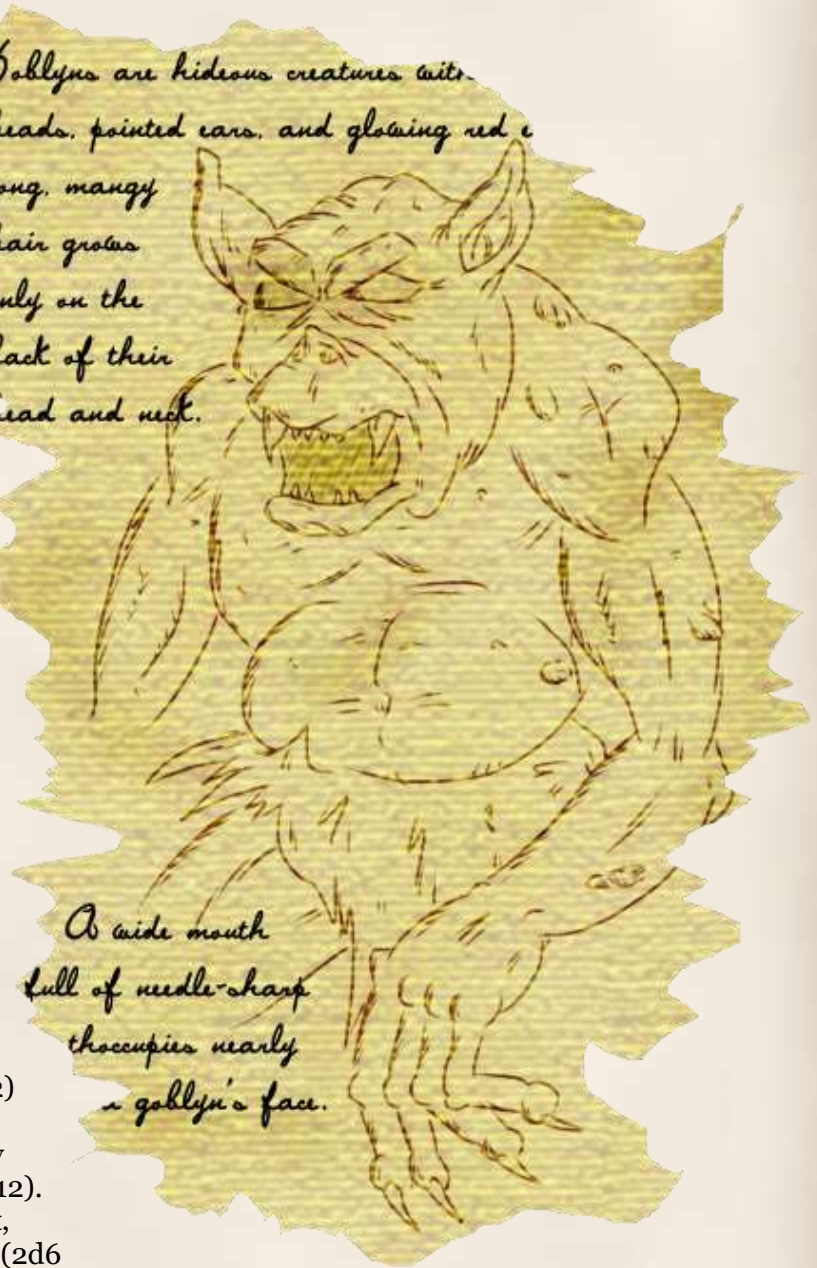 Goblyns are hideous creatures with
heads, pointed ears, and glowing red e
ong, mangy
hair grows
only on the
back of their
head and neck.
A wide mouth
full of needle-sharp
thoccupies nearly
goblyn's face.
2)
y
12).
t,
(2d6